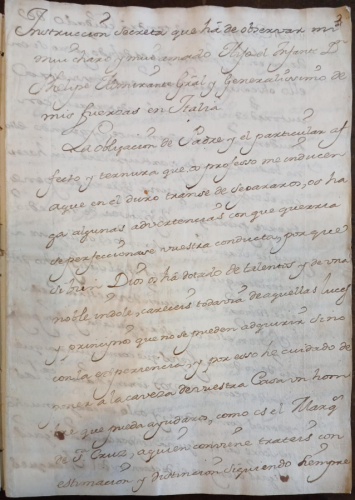 Instruccion Secreta que há de observar mi
muy charo y muy amado Hijo el Infante Dn
Phelipe Almirante Gral y Generalissimo de
mis fuerzas en Italia.
La obligacion de Padre y el particular af
fecto y ternura que os professo me inducen
a que en el duro transe de separaros, os ha
ga algunas advertencias con que querria
se perfecionase vuestra conducta, porque
si bien Dios os há dotado de talentos y de una
noble indole, careceis todavia de aquellas luces
y principios que no se pueden adquirir sino
con la experiencia, y por esso he cuidado de
poner a la caveza de vuestra Casa un hom
bre que pueda ayudaros, como es el Marqs
de Sta Cruz, a quien conviene trateis con
estimacion y distincion siguiendo siempre